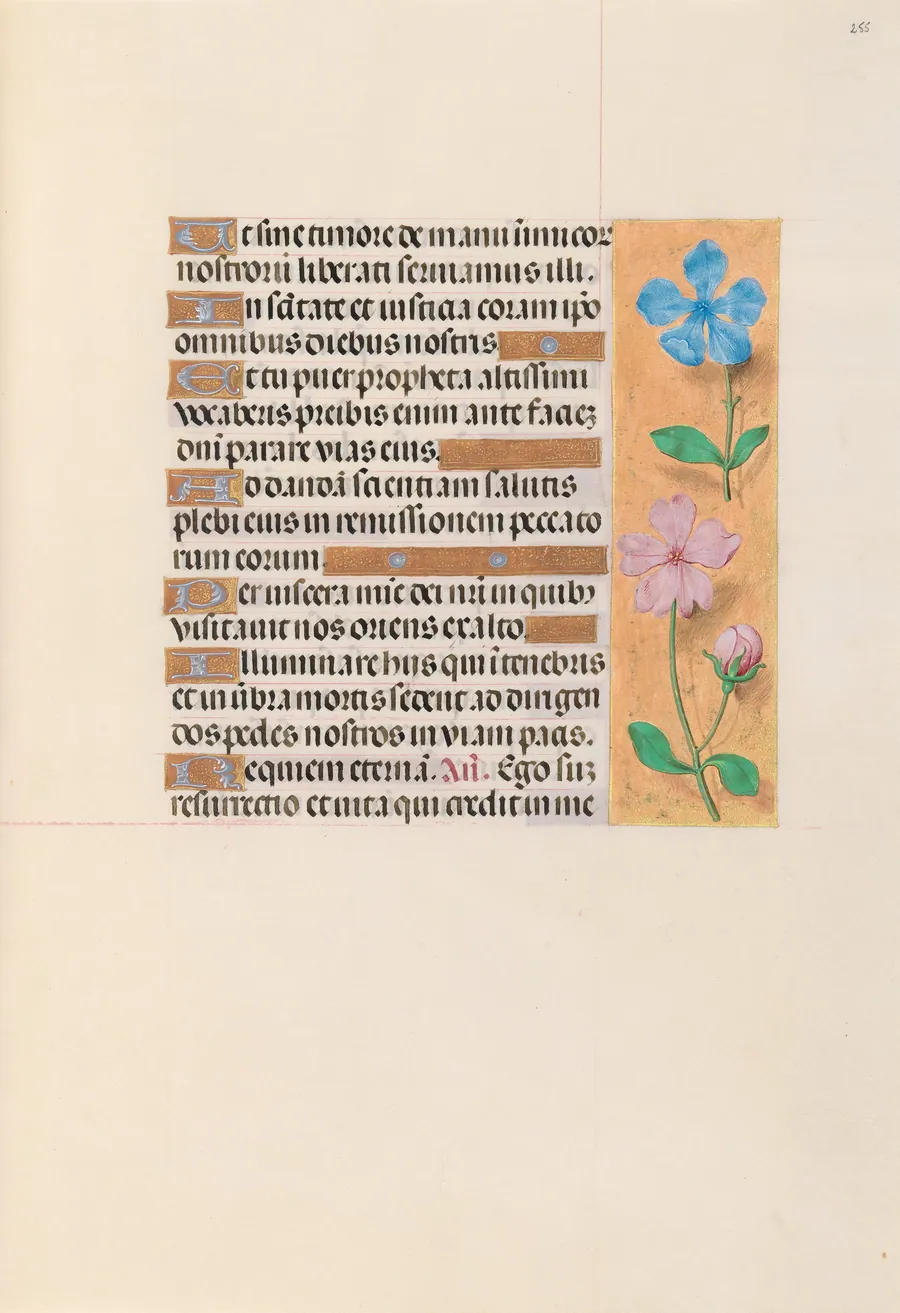 255
Ut sine timore de manu inimicor
nostrorū liberati seruiamus illi.
In sc̄itate et iusticia coram ip̄o
omnibus diebus nostris
Et tu puer propheta altissimi
vocaberis preibis enim ante faciez
dn̄i parare vias eius.
Ad dandā scientiam salutis
plebi eius in remissionem peccato
rum eorum.
Per uiscera mīe dei nr̄i in quibꝰ
visitauit nos oriens ex alto.
Illuminare hiis qui ī tenebris
et in ūbra mortis sedent ad dirigen
dos pedes nostros in viam pacis.
Requiem eternā. Añ. Ego suz
resurrectio et uita qui credit in me